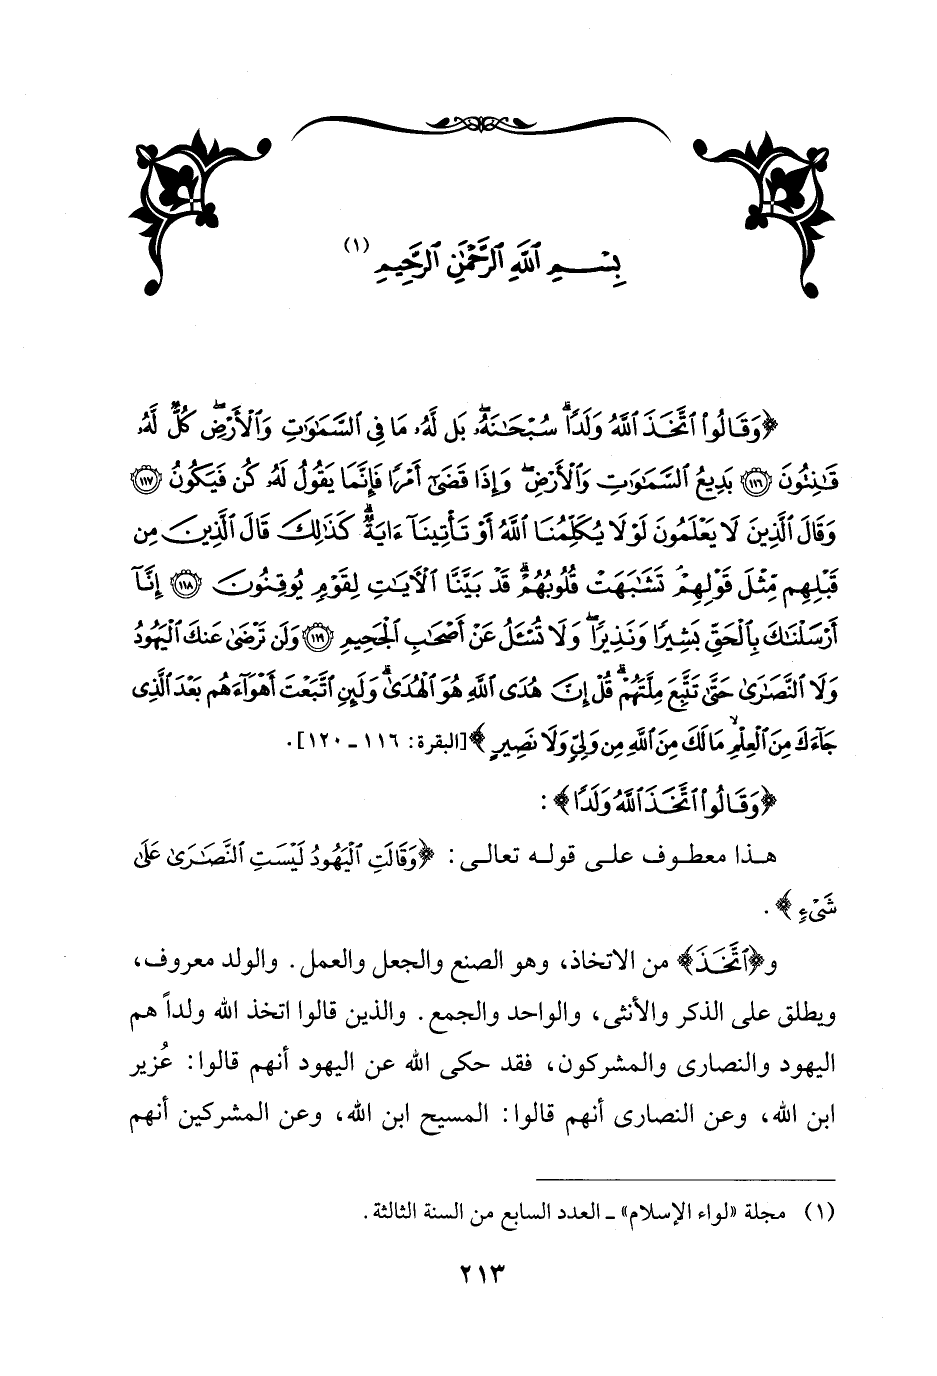 بِسْمِ اللَّهِ الرَّحْمَٰنِ الرَّحِيمِ (١)
﴿وَقَالُوا۟ ٱتَّخَذَ ٱللَّهُ وَلَدًا ۗ سُبْحَـٰنَهُۥ ۖ بَل لَّهُۥ مَا فِى ٱلسَّمَـٰوَٰتِ وَٱلْأَرْضِ ۖ كُلٌّ لَّهُۥ
قَـٰنِتُونَ ١١٦ بَدِيعُ ٱلسَّمَـٰوَٰتِ وَٱلْأَرْضِ ۖ وَإِذَا قَضَىٰٓ أَمْرًا فَإِنَّمَا يَقُولُ لَهُۥ كُن فَيَكُونُ ١١٧
وَقَالَ ٱلَّذِينَ لَا يَعْلَمُونَ لَوْلَا يُكَلِّمُنَا ٱللَّهُ أَوْ تَأْتِينَآ ءَايَةٌ ۗ كَذَٰلِكَ قَالَ ٱلَّذِينَ مِن
قَبْلِهِم مِّثْلَ قَوْلِهِمْ ۘ تَشَـٰبَهَتْ قُلُوبُهُمْ ۗ قَدْ بَيَّنَّا ٱلْـَٔايَـٰتِ لِقَوْمٍ يُوقِنُونَ ١١٨ إِنَّآ
أَرْسَلْنَـٰكَ بِٱلْحَقِّ بَشِيرًا وَنَذِيرًا ۖ وَلَا تُسْـَٔلُ عَنْ أَصْحَـٰبِ ٱلْجَحِيمِ ١١٩ وَلَن تَرْضَىٰ عَنكَ ٱلْيَهُودُ
وَلَا ٱلنَّصَـٰرَىٰ حَتَّىٰ تَتَّبِعَ مِلَّتَهُمْ ۗ قُلْ إِنَّ هُدَى ٱللَّهِ هُوَ ٱلْهُدَىٰ ۗ وَلَئِنِ ٱتَّبَعْتَ أَهْوَآءَهُم بَعْدَ ٱلَّذِى
جَآءَكَ مِنَ ٱلْعِلْمِ ۙ مَا لَكَ مِنَ ٱللَّهِ مِن وَلِىٍّ وَلَا نَصِيرٍ﴾ [البقرة: ١١٦ - ١٢٠].
﴿وَقَالُوا۟ ٱتَّخَذَ ٱللَّهُ وَلَدًا﴾:
هذا معطوف على قوله تعالى: ﴿وَقَالَتِ ٱلْيَهُودُ لَيْسَتِ ٱلنَّصَـٰرَىٰ عَلَىٰ
شَىْءٍ﴾.
و﴿ٱتَّخَذَ﴾ من الاتخاذ، وهو الصنع والجعل والعمل. والولد معروف،
ويطلق على الذكر والأنثى، والواحد والجمع. والذين قالوا اتخذ الله ولداً هم
اليهود والنصارى والمشركون، فقد حكى الله عن اليهود أنهم قالوا: عُزير
ابن الله، وعن النصارى أنهم قالوا: المسيح ابن الله، وعن المشركين أنهم
(١) مجلة «لواء الإسلام» - العدد السابع من السنة الثالثة.
٢١٣